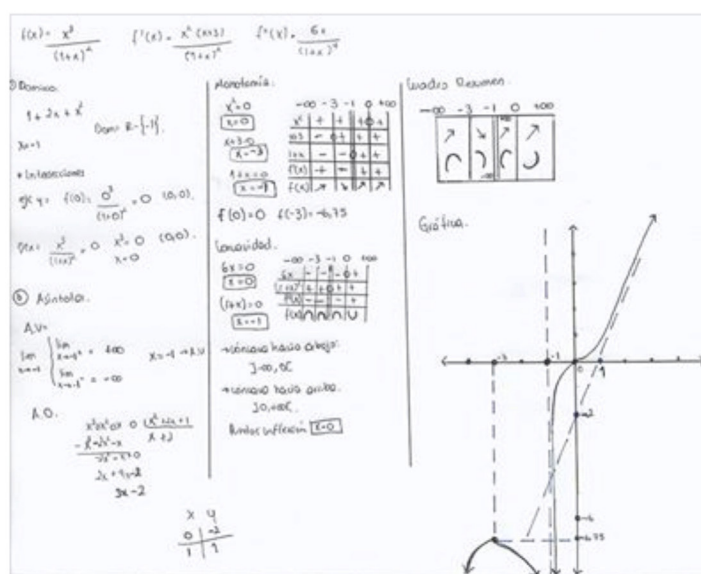 f(x) = x³/(1+x)²   f'(x) = x²(x+3)/(1+x)²   f''(x) = 6x/(1+x)⁴
1) Dominio:
1 + 2x + x²
Dom = R - {-1}.
* Intersecciones
eje y = f(0) = 0³/(1+0)² = 0 (0,0).
x³/(1+x)² = 0 x³ = 0 (0,0).
x = 0
Asíntotas.
A.V=
lim x→-1
lim = +∞
lim = -∞
x = -1 → A.V
A.O.
x²+2x+1
3x - 2
x y
0 -2
1 1
Monotonía:
x² = 0
x = 0
x+3 = 0
x = -3
1+x = 0
x = -1
-∞ -3 -1 0 +∞
x² + + + +
x+3 - + + +
1+x - - + +
f'(x) + - + +
f(x) ↗ ↘ ↗ ↗
f(0) = 0 f(-3) = -6,75
Concavidad:
6x = 0
x = 0
(1+x) = 0
x = -1
-∞ -3 -1 0 +∞
6x - - - +
f(x) ∩ ∩ ∩ ∪
→ cóncava hacia abajo:
]-∞, 0[
→ cóncava hacia arriba.
]0, +∞[
Puntos inflexión x=0
Cuadro Resumen.
-∞ -3 -1 0 +∞
↗ ↘ ↗ ↗
Gráfica.
-3 -1 0 1
-2
-6
-6.75